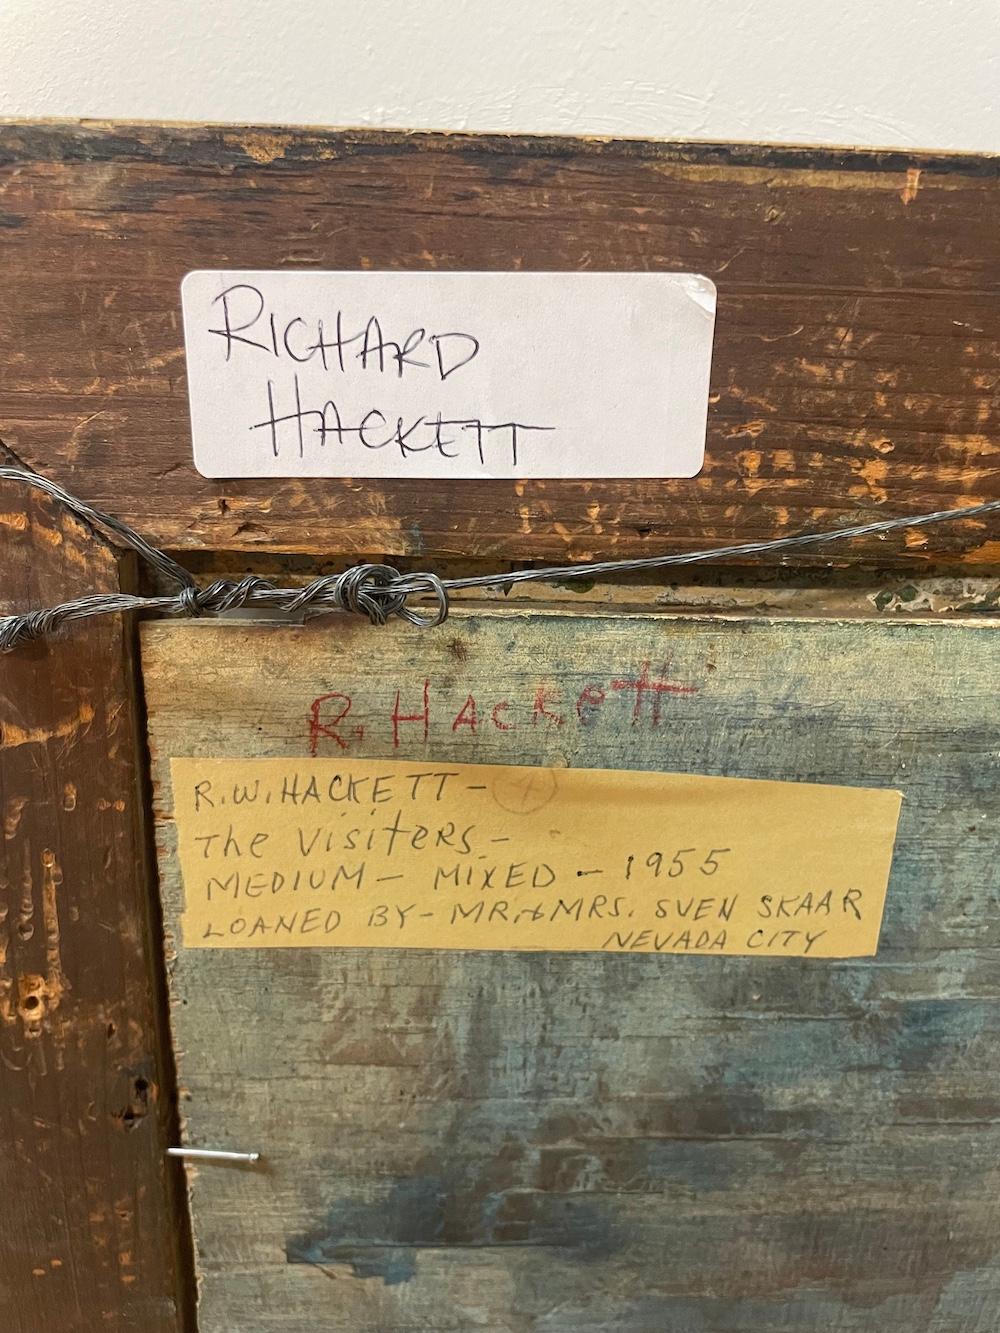 RICHARD
HACKETT
R. HACKETT
R.W. HACKETT –
The VISITERS –
MEDIUM – MIXED – 1955
LOANED BY – MR. & MRS. SVEN SKAAR
NEVADA CITY